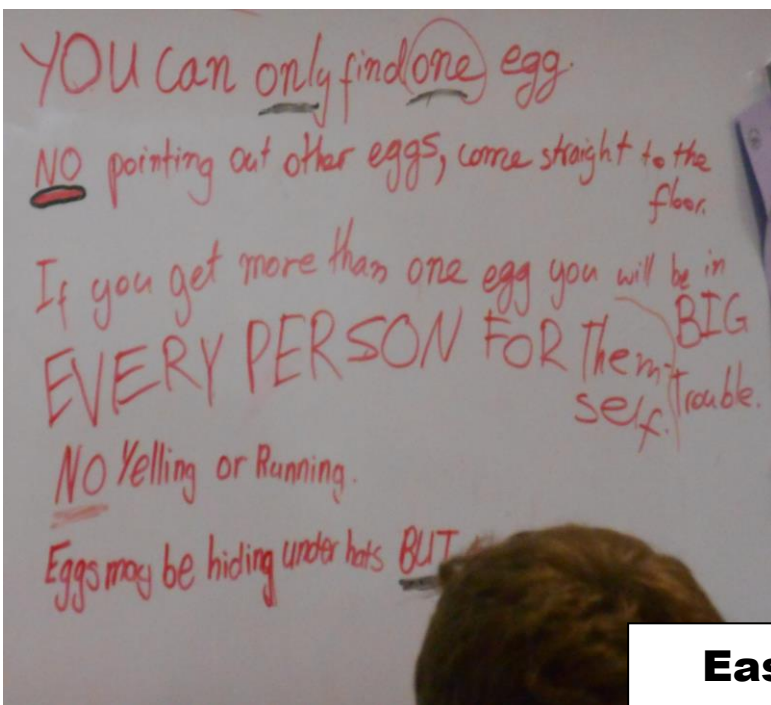 YOU can only find one egg.
NO pointing out other eggs, come straight to the
floor.
If you get more than one egg you will be in
BIG
trouble.
EVERY PERSON FOR Them-
self.
NO Yelling or Running.
Eggs may be hiding under hats BUT